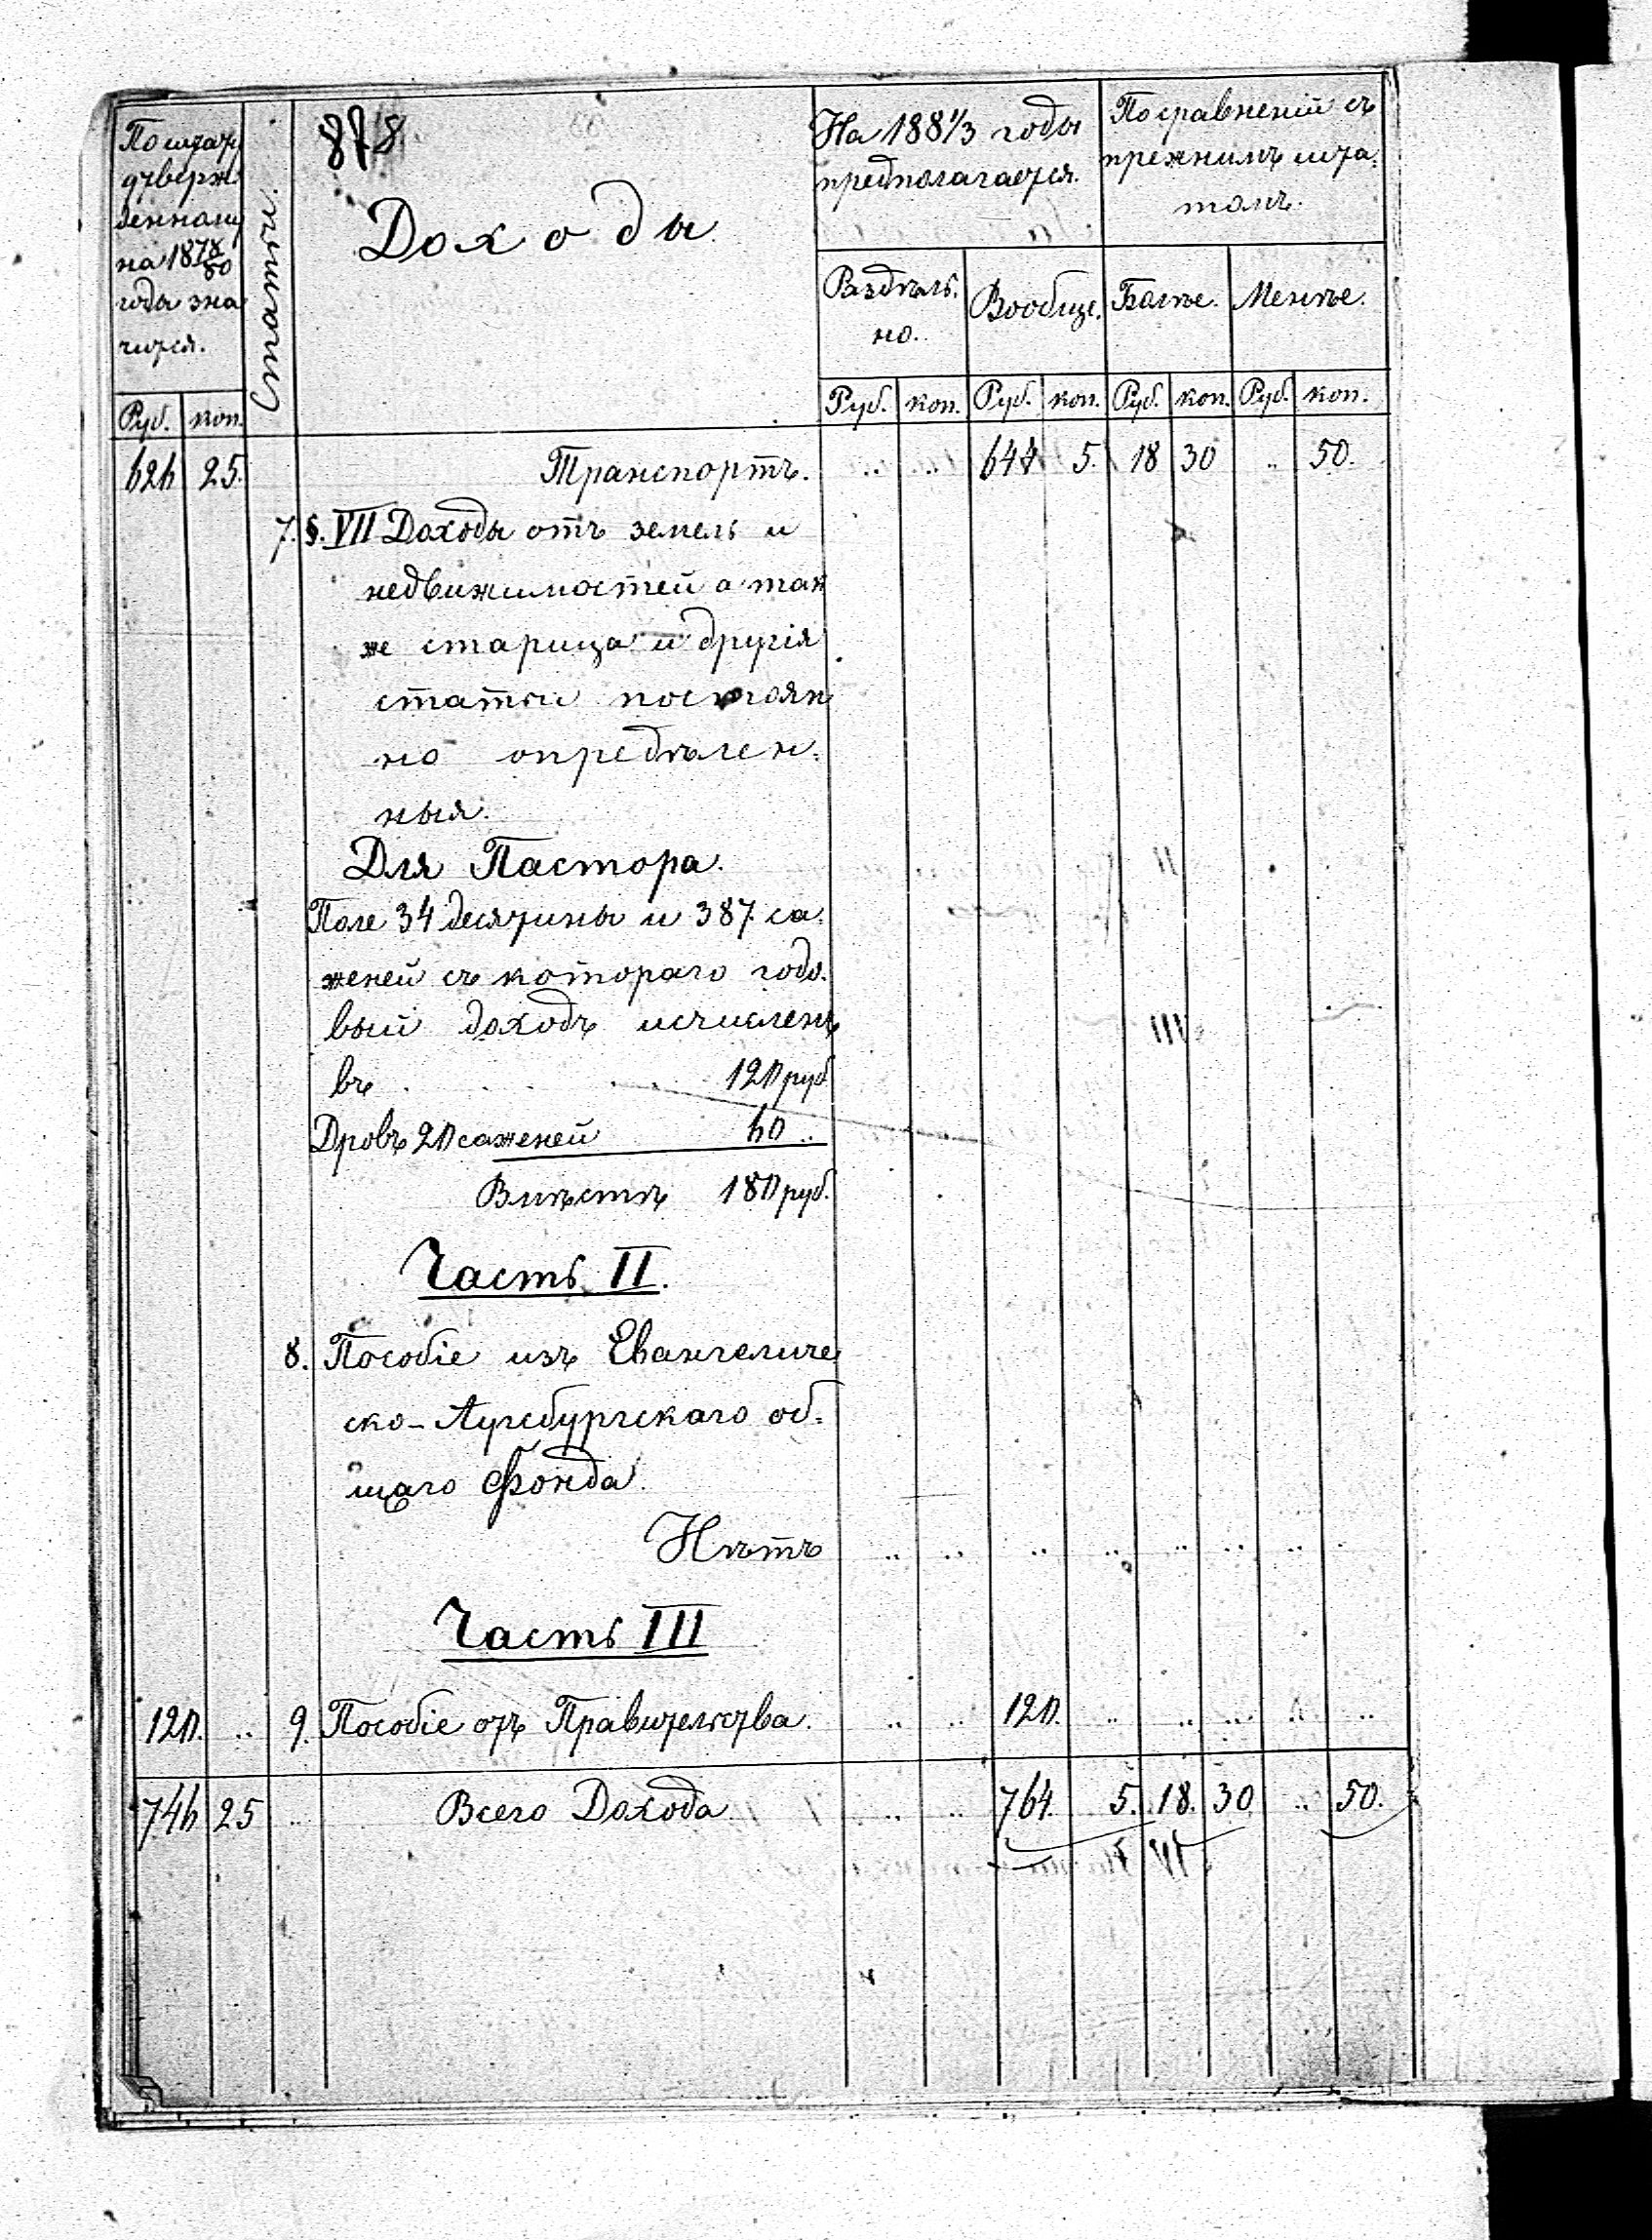 878
По штату
утверж-
денному
на 1878/80
года зна
чится.
Статьи.
Доходы.
На 1881/3 годы
предполагается.
По сравненій съ
прежнимъ шта-
томъ.
Раздѣль-
но.
Вообще.
Болѣе.
Менѣе.
Руб. коп. Руб. коп. Руб. коп. Руб. коп. Руб. коп.
626 25. Транспортъ. .. .. 644 5. 18 30 .. 50.
7. §. VII Доходы отъ земель и
недвижимостей а так
же старица и другія
статьи постоян
но опредѣлен-
ныя.
Для Пастора.
Поле 34 десятины и 387 са-
женей съ котораго годо-
вый доходъ исчисленъ
въ . . . . 120 руб
Дровъ 20 саженей 60 ..
Вмѣстѣ 180 руб.
Часть II.
8. Пособіе изъ Евангеличе
ско-Аугсбургскаго об-
щаго Фонда.
Нѣтъ .. .. .. .. .. .. .. .
Часть III
120. .. 9. Пособіе отъ Правительства. .. .. 120. .. .. .. .. ..
746 25 .. Всего Дохода .. .. 764. 5. 18. 30 .. 50.